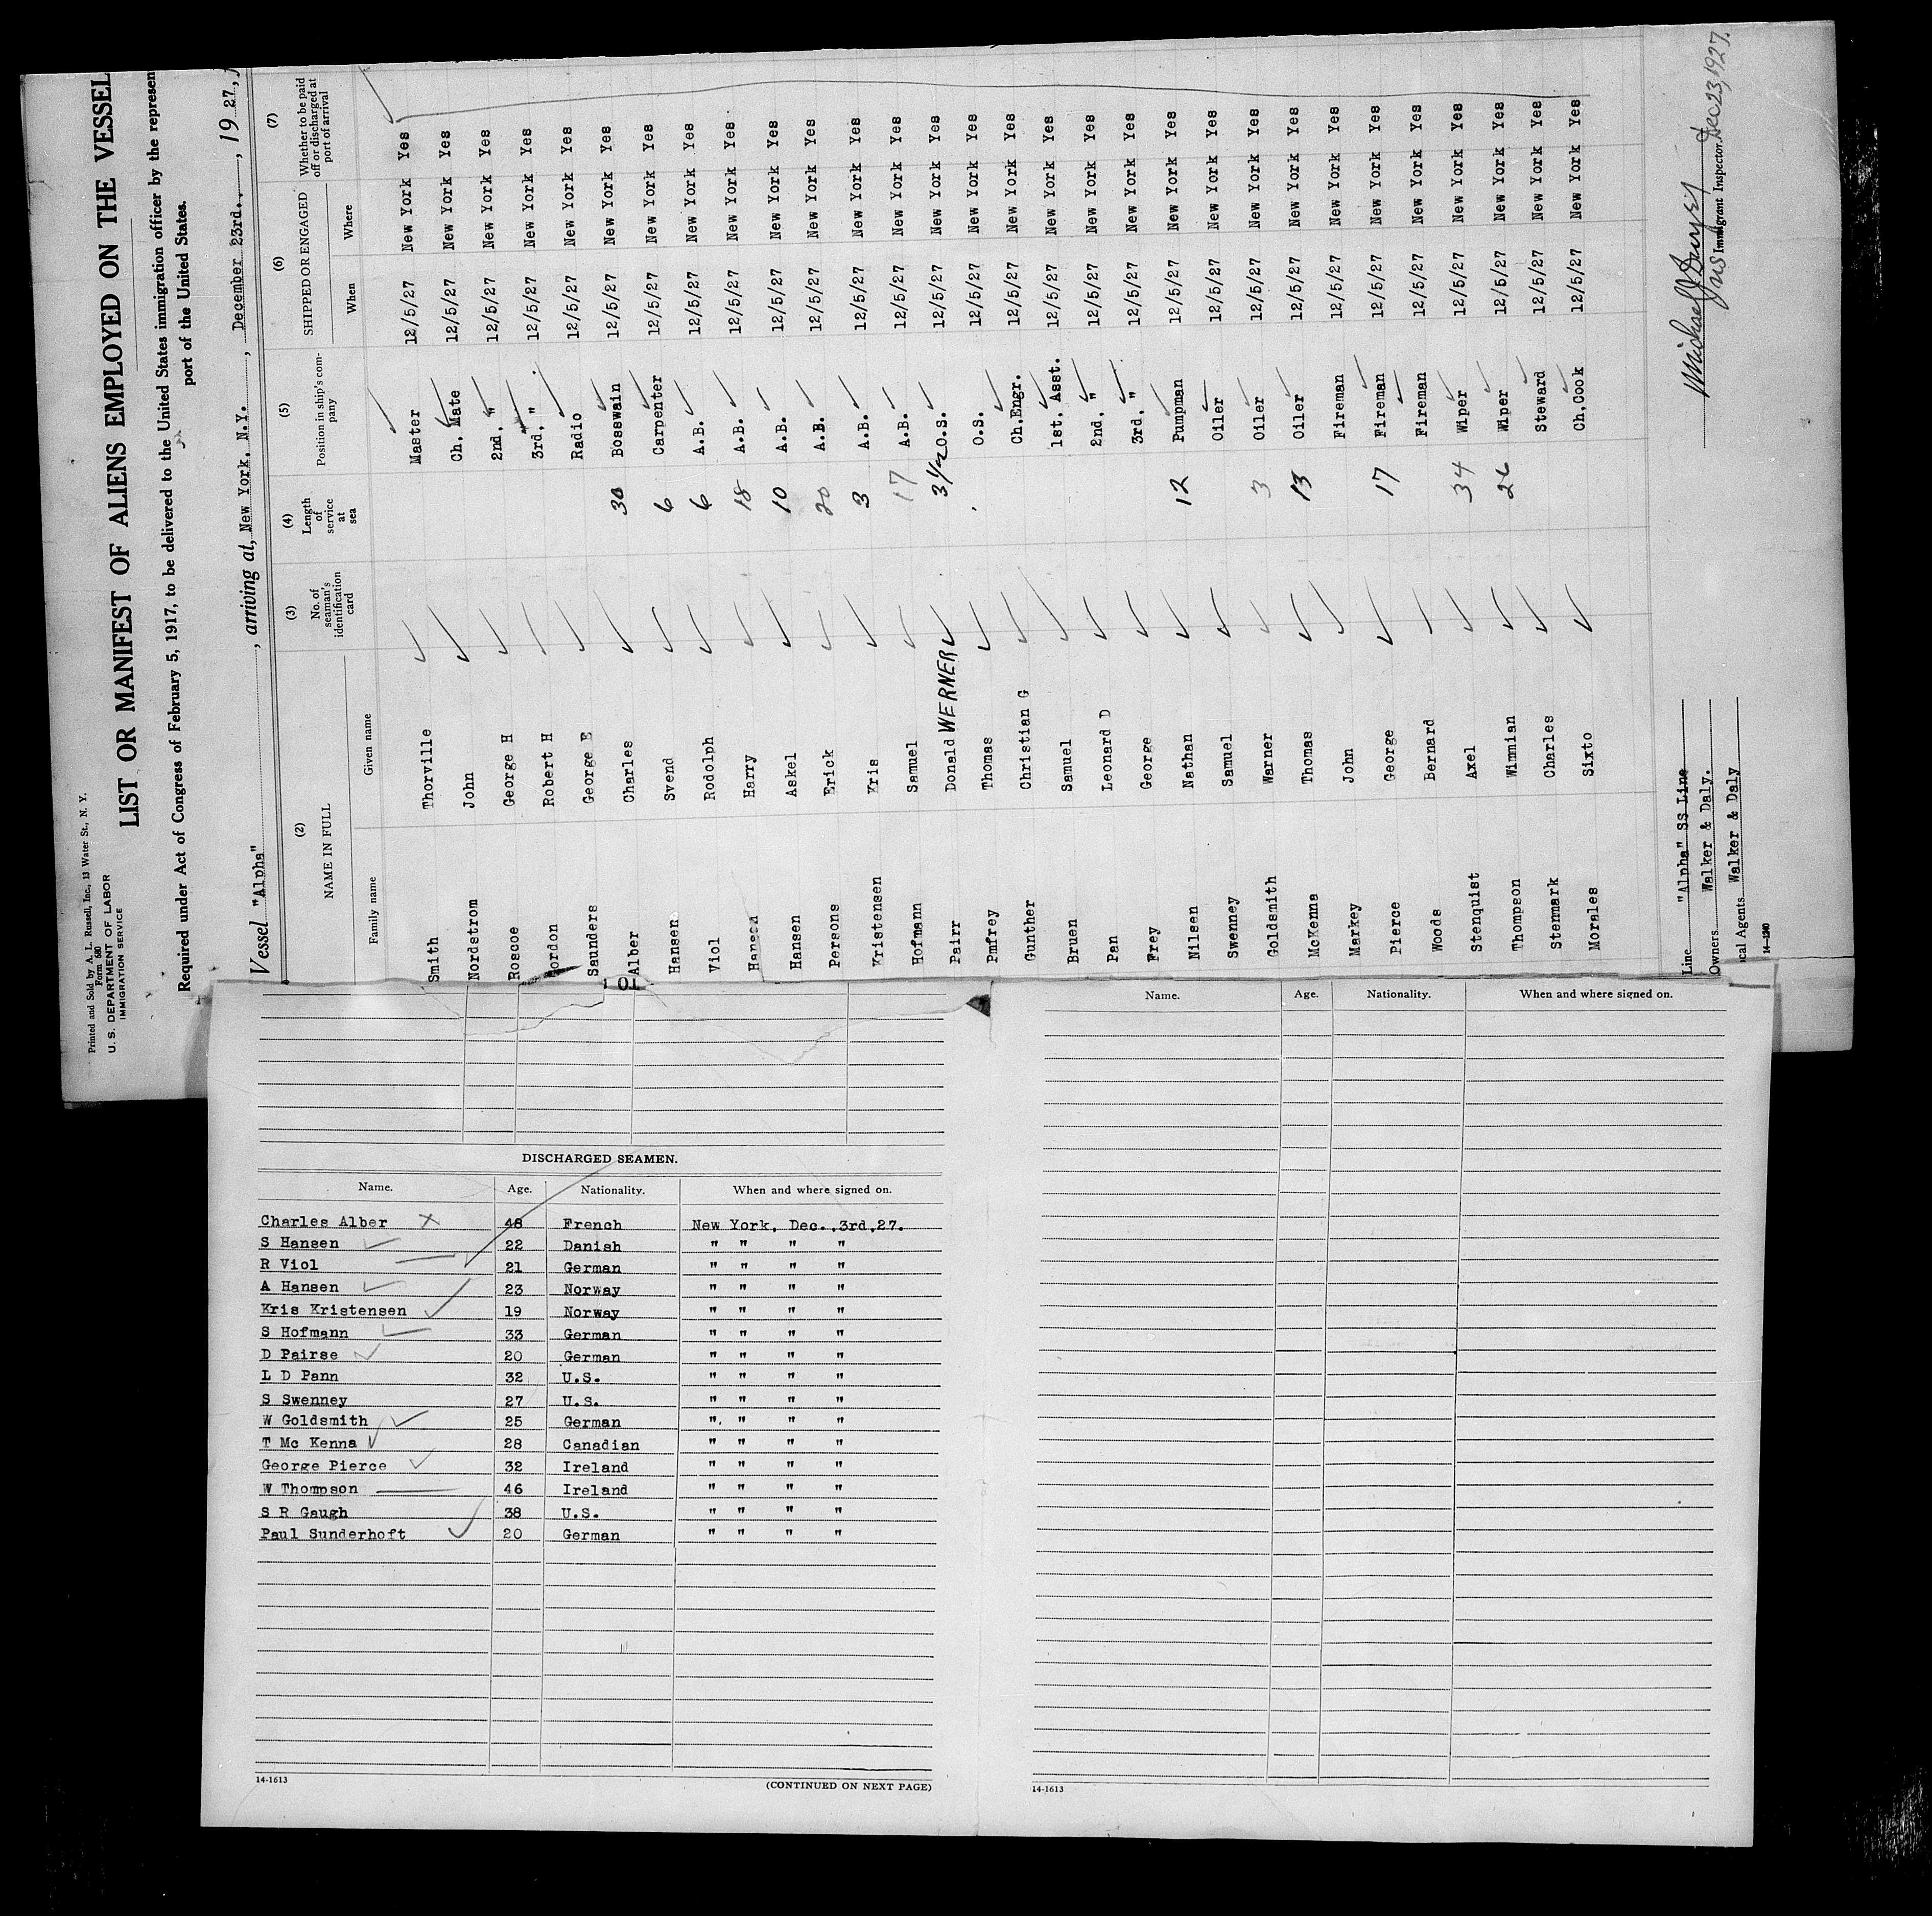 Printed and Sold by A. L. Russell, Inc., 13 Water St., N. Y.
Form 680
U. S. DEPARTMENT OF LABOR
IMMIGRATION SERVICE
LIST OR MANIFEST OF ALIENS EMPLOYED ON THE VESSEL
Required under Act of Congress of February 5, 1917, to be delivered to the United States immigration officer by the represen
port of the United States.
Vessel "Alpha", arriving at, New York, N.Y., December 23rd., 19 27,
(2) (3) (4) (5) (6) (7)
NAME IN FULL No. of seaman's identification card Length of service at sea Position in ship's company SHIPPED OR ENGAGED Whether to be paid off or discharged at port of arrival
Family name Given name When Where
Smith Thorville Master 12/5/27 New York Yes
Nordstrom John Ch. Mate 12/5/27 New York Yes
Roscoe George H 2nd. " 12/5/27 New York Yes
ordon Robert H 3rd. " 12/5/27 New York Yes
Saunders George E Radio 12/5/27 New York Yes
Alber Charles 30 Bosswain 12/5/27 New York Yes
Hansen Svend 6 Carpenter 12/5/27 New York Yes
Viol Rodolph 6 A.B. 12/5/27 New York Yes
Hanson Harry 18 A.B. 12/5/27 New York Yes
Hansen Askel 10 A.B. 12/5/27 New York Yes
Persons Erick 20 A.B. 12/5/27 New York Yes
Kristensen Kris 3 A.B. 12/5/27 New York Yes
Hofmann Samuel 17 A.B. 12/5/27 New York Yes
Pairr Donald WERNER 3 1/2 O.S. 12/5/27 New York Yes
Pmfrey Thomas O.S. 12/5/27 New York Yes
Gunther Christian G Ch.Engr. 12/5/27 New York Yes
Bruen Samuel 1st. Asst. 12/5/27 New York Yes
Pan Leonard D 2nd. " 12/5/27 New York Yes
Frey George 3rd. " 12/5/27 New York Yes
Nilsen Nathan 12 Pumpman 12/5/27 New York Yes
Swenney Samuel Oiler 12/5/27 New York Yes
Goldsmith Warner 3 Oiler 12/5/27 New York Yes
McKenna Thomas 13 Oiler 12/5/27 New York Yes
Markey John Fireman 12/5/27 New York Yes
Pierce George 17 Fireman 12/5/27 New York Yes
Woods Bernard Fireman 12/5/27 New York Yes
Stenquist Axel 34 Wiper 12/5/27 New York Yes
Thompson Wimmian 26 Wiper 12/5/27 New York Yes
Stenmark Charles Steward 12/5/27 New York Yes
Morales Sixto Ch.Cook 12/5/27 New York Yes
Line "Alpha" SS Line
Owners Walker & Daly.
cal Agents Walker & Daly
14-1240
Michael J Dwyer
Immigrant Inspector. Dec 23, 1927.
10
DISCHARGED SEAMEN.
Name. Age. Nationality. When and where signed on.
Charles Alber 48 French New York, Dec. ,3rd,27.
S Hansen 22 Danish " " " "
R Viol 21 German " " " "
A Hansen 23 Norway " " " "
Kris Kristensen 19 Norway " " " "
S Hofmann 33 German " " " "
D Pairse 20 German " " " "
L D Pann 32 U.S. " " " "
S Swenney 27 U.S. " " " "
W Goldsmith 25 German " " " "
T Mc Kenna 28 Canadian " " " "
George Pierce 32 Ireland " " " "
W Thompson 46 Ireland " " " "
S R Gaugh 38 U.S. " " " "
Paul Sunderhoft 20 German " " " "
14-1613
(CONTINUED ON NEXT PAGE)
Name. Age. Nationality. When and where signed on.
14-1613